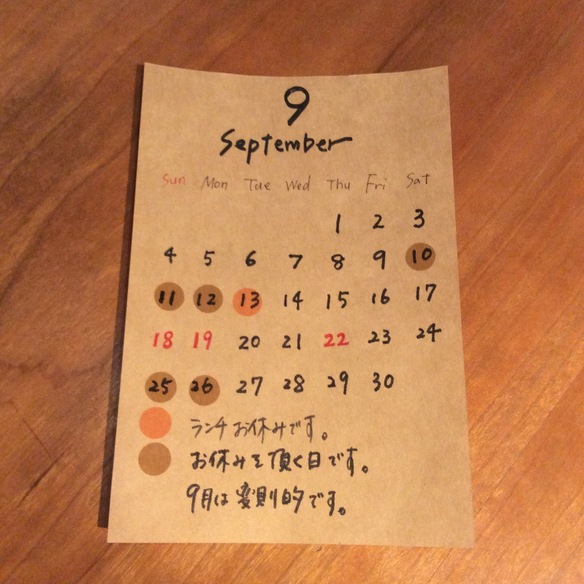 9
September
Sun Mon Tue Wed Thu Fri Sat
1 2 3
4 5 6 7 8 9 10
11 12 13 14 15 16 17
18 19 20 21 22 23 24
25 26 27 28 29 30
ランチお休みです。
お休みを頂く日です。
9月は変則的です。